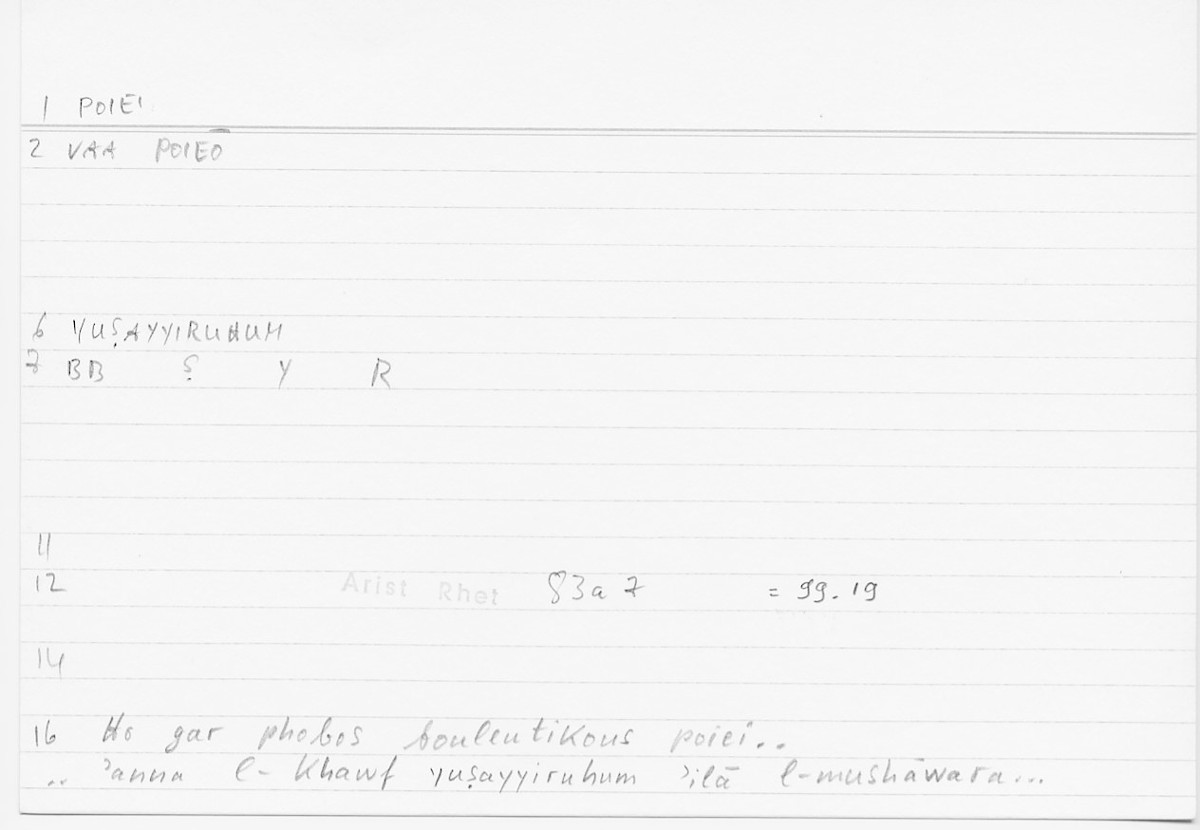 1 POIEI
2 VAA POIEŌ
6 YUṢAYYIRUHUM
7 BB Ṣ Y R
11
12 Arist Rhet 83a7 = 99.19
14
16 Ho gar phobos bouleutikous poiei..
.. ʾanna l-Khawf yuṣayyiruhum ʾilā l-mushāwara...